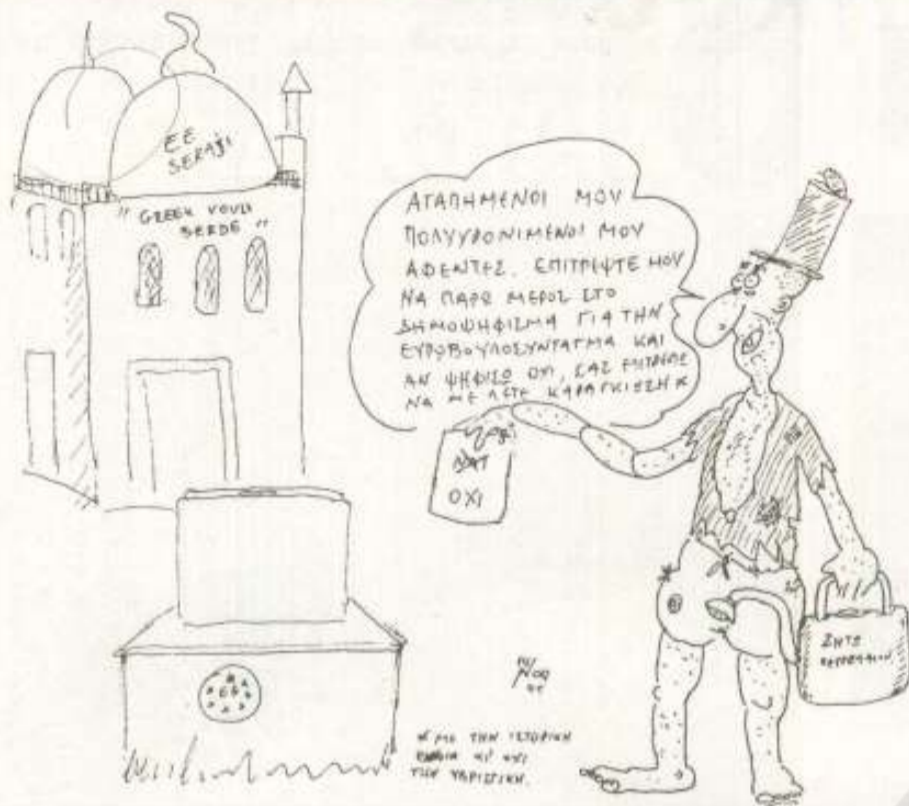 EE
SERAJI
"GREEK VOULI
SERDE"
ΑΓΑΠΗΜΕΝΟΙ ΜΟΥ
ΠΟΛΥΧΡΟΝΙΜΕΝΟΙ ΜΟΥ
ΑΦΕΝΤΕΣ. ΕΠΙΤΡΕΨΤΕ ΜΟΥ
ΝΑ ΠΑΡΩ ΜΕΡΟΣ ΣΤΟ
ΔΗΜΟΨΗΦΙΣΜΑ ΓΙΑ ΤΗΝ
ΕΥΡΩΒΟΥΛΟΣΥΝΤΑΓΜΑ ΚΑΙ
ΑΝ ΨΗΦΙΣΩ ΟΧΙ, ΣΑΣ ΕΠΙΤΡΕΠΩ
ΝΑ ΜΕ ΛΕΤΕ ΚΑΡΑΓΚΙΟΖΗ *
ΝΑΙ
ΟΧΙ
ΕΕ
ΖΗΤΩ
* ΜΕ ΤΗΝ ΙΣΤΟΡΙΚΗ
ΚΙ ΟΧΙ
ΤΗΝ ΥΒΡΙΣΤΙΚΗ.